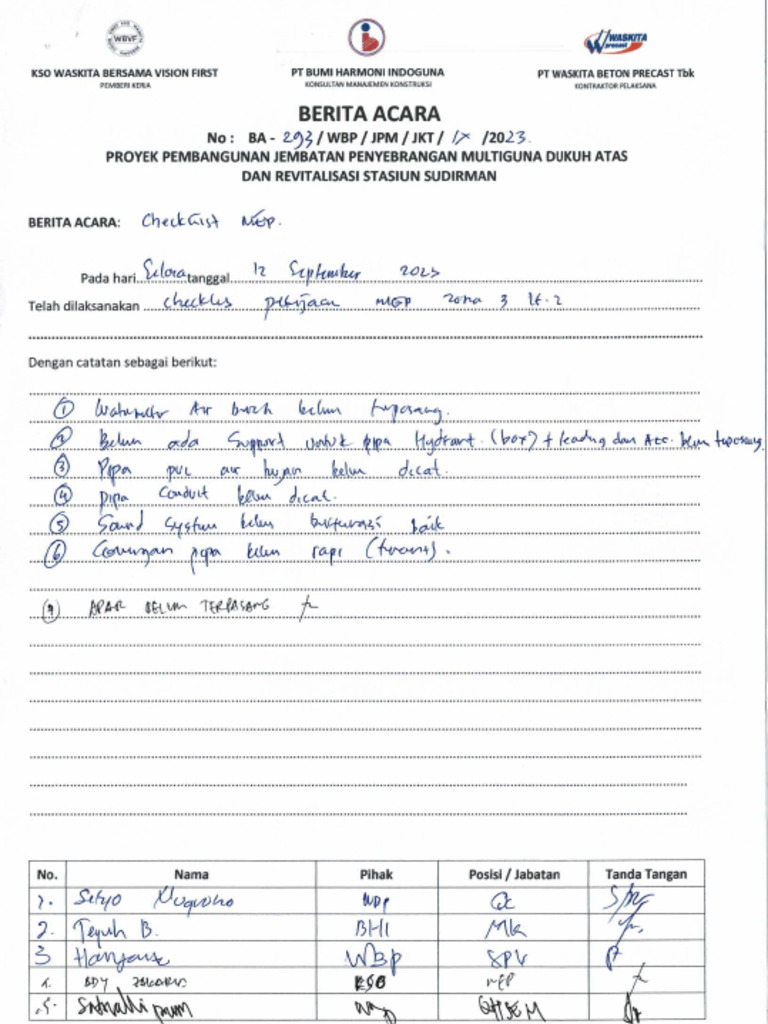 WBVF
WASKITA
precast
KSO WASKITA BERSAMA VISION FIRST
PEMBERI KERJA
PT BUMI HARMONI INDOGUNA
KONSULTAN MANAJEMEN KONSTRUKSI
PT WASKITA BETON PRECAST Tbk
KONTRAKTOR PELAKSANA
BERITA ACARA
No : BA - 293 / WBP / JPM / JKT / IX / 2023
PROYEK PEMBANGUNAN JEMBATAN PENYEBRANGAN MULTIGUNA DUKUH ATAS
DAN REVITALISASI STASIUN SUDIRMAN
BERITA ACARA: Checklist MEP.
Pada hari Selasa tanggal 12 September 2023
Telah dilaksanakan checklis pekerjaan MEP zona 3 lt. 2
Dengan catatan sebagai berikut:
① Air belum terpasang.
② Belum ada Support untuk pipa Hydrant (box) + dan Acc. belum terpasang
③ Pipa pvc air hujan belum dicat.
④ pipa conduit belum dicat.
⑤ Sound System belum berfungsi baik
⑥ pipa belum rapi
APAR BELUM TERPASANG
No. Nama Pihak Posisi / Jabatan Tanda Tangan
1. Setyo Nugroho WBP QC
2. Teguh B. BHI MK
3 WBP SPV
KSO MEP
5.